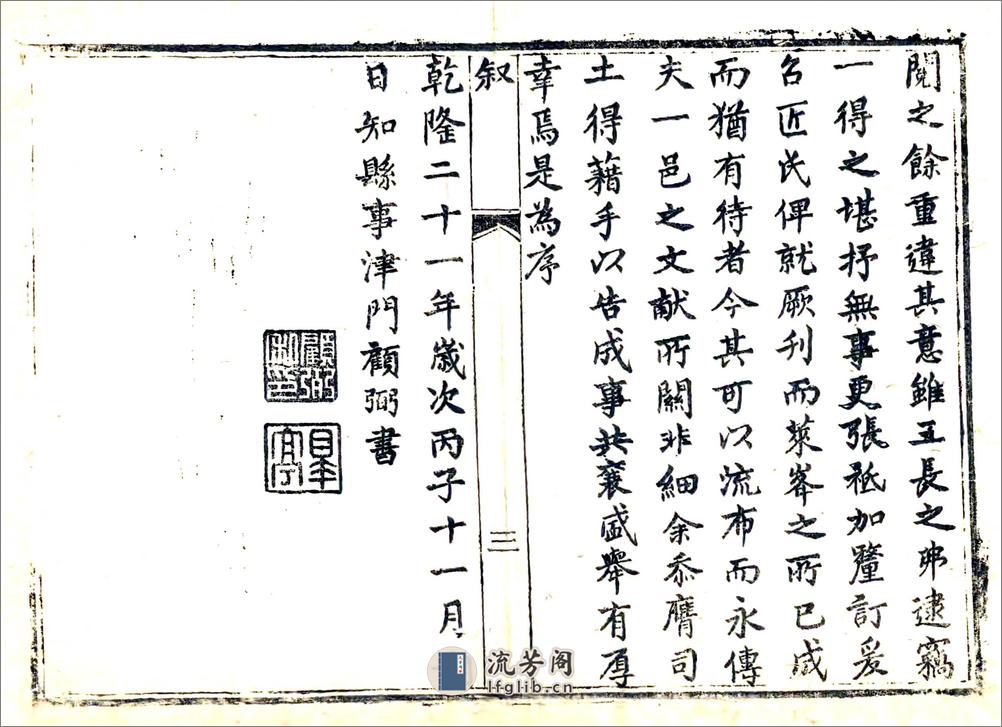 閱之餘重違其意雖五長之弗逮竊
一得之堪抒無事更張祗加釐訂爰
召匠氏俾就厥刊而萊峯之所已成
而猶有待者今其可以流布而永傳
夫一邑之文献所關非細余忝膺司
土得藉手以告成事共襄盛舉有厚
幸焉是為序
叙
三
乾隆二十一年歲次丙子十一月
日知縣事津門顧弼書
流芳阁
lfglib.cn